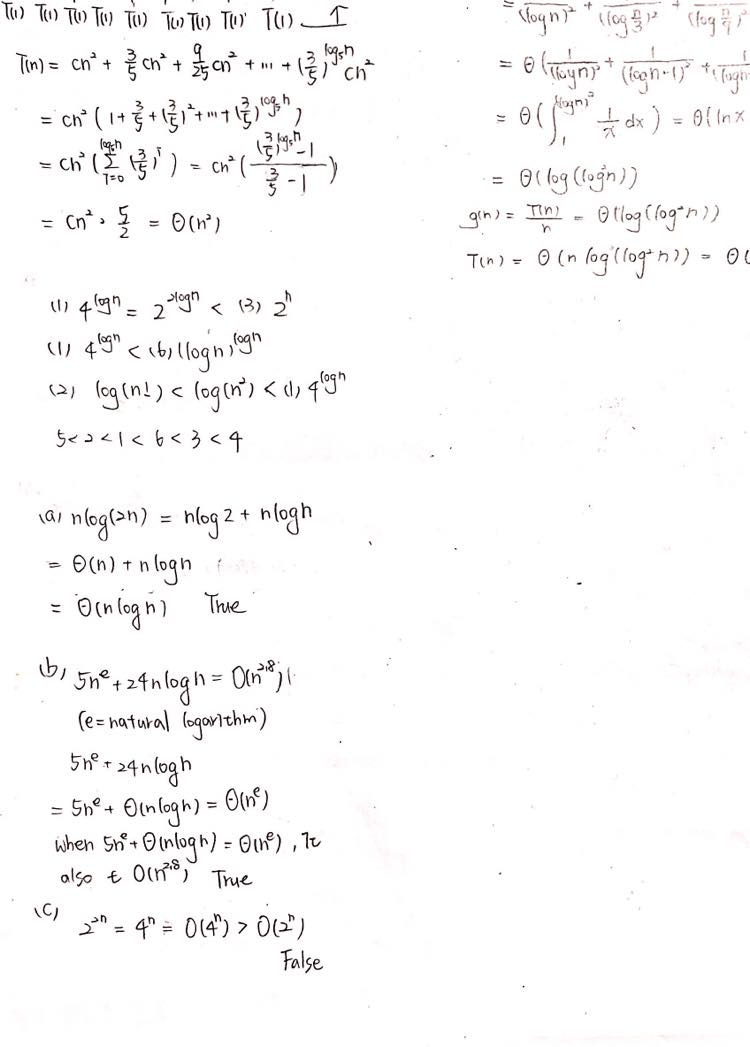 T(1) T(1) T(1) T(1) T(1) T(1) T(1) T(1) T(1)
T(n) = cn² + 3/5 cn² + 9/25 cn² + ... + (3/5)^{log₅n} cn²
= cn² (1 + 3/5 + (3/5)² + ... + (3/5)^{log₅n})
= cn² (∑_{i=0}^{log₅n} (3/5)^i) = cn² (((3/5)^{log₅n} - 1)/(3/5 - 1))
= cn² · 5/2 = Θ(n²)
(1) 4^{logn} = 2^{2logn} < (3) 2^n
(1) 4^{logn} < (6) (logn)^{logn}
(2) log(n!) < log(n²) < (1) 4^{logn}
5 < 2 < 1 < 6 < 3 < 4
(a) nlog(2n) = nlog2 + nlogn
= Θ(n) + nlogn
= Θ(nlogn) True
(b) 5n^e + 24nlogn = O(n^{2.8})
(e = natural logarithm)
5n^e + 24nlogn
= 5n^e + Θ(nlogn) = Θ(n^e)
when 5n^e + Θ(nlogn) = Θ(n^e),
also O(n^{2.8}) True
(c)
2^{2n} = 4^n = O(4^n) > O(2^n)
False
= (logn)² + (log n/3)² + (log n/9)²
= Θ(1/(logn)² + 1/(logn-1)² +
= Θ(∫_1^{(logn)²} 1/x dx) = Θ(ln x
= Θ(log(log²n))
g(n) = T(n)/n = Θ(log(log²n))
T(n) = Θ(n log(log²n)) = Θ(